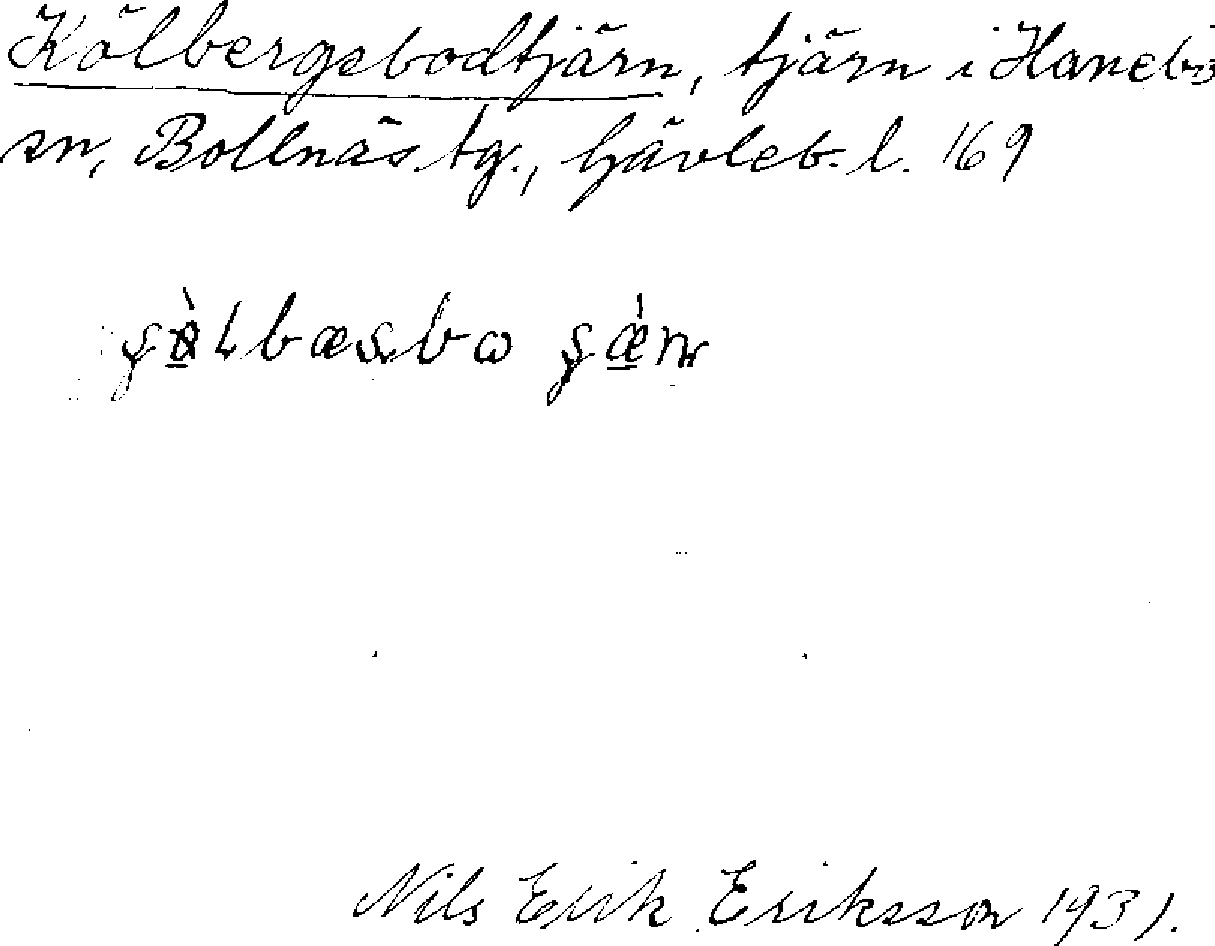 Kölbergsbodtjärn, tjärn i Hanebo
sn, Bollnäs tg., Gävleb. l. 169
Nils Erik Eriksson 1931.